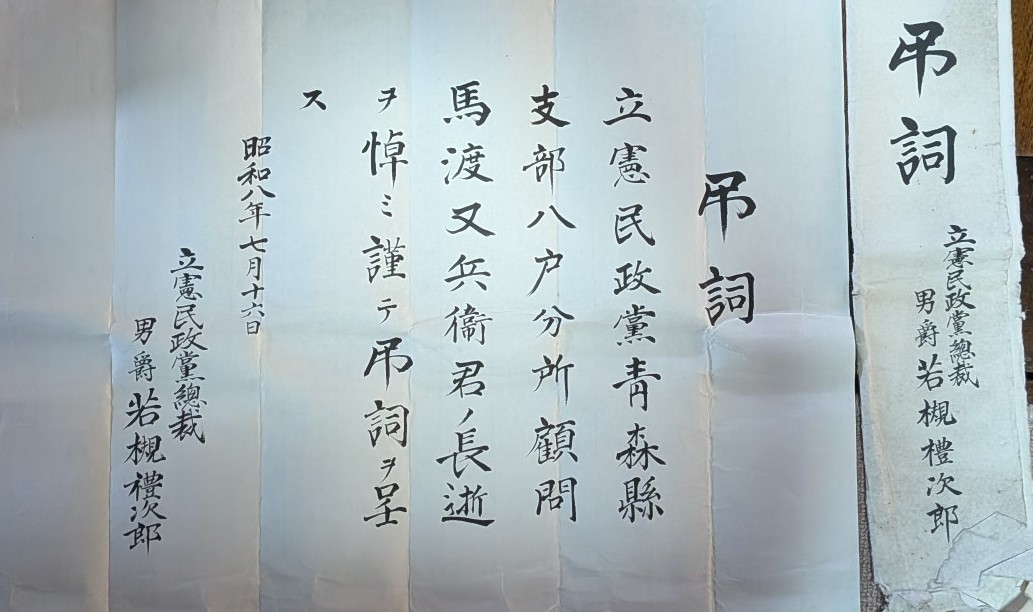 吊詞
立憲民政黨總裁
男爵若槻禮次郎
吊詞
立憲民政黨青森縣
支部八戸分所顧問
馬渡又兵衞君ノ長逝
ヲ悼ミ謹テ吊詞ヲ呈
ス
昭和八年七月十六日
立憲民政黨總裁
男爵若槻禮次郎